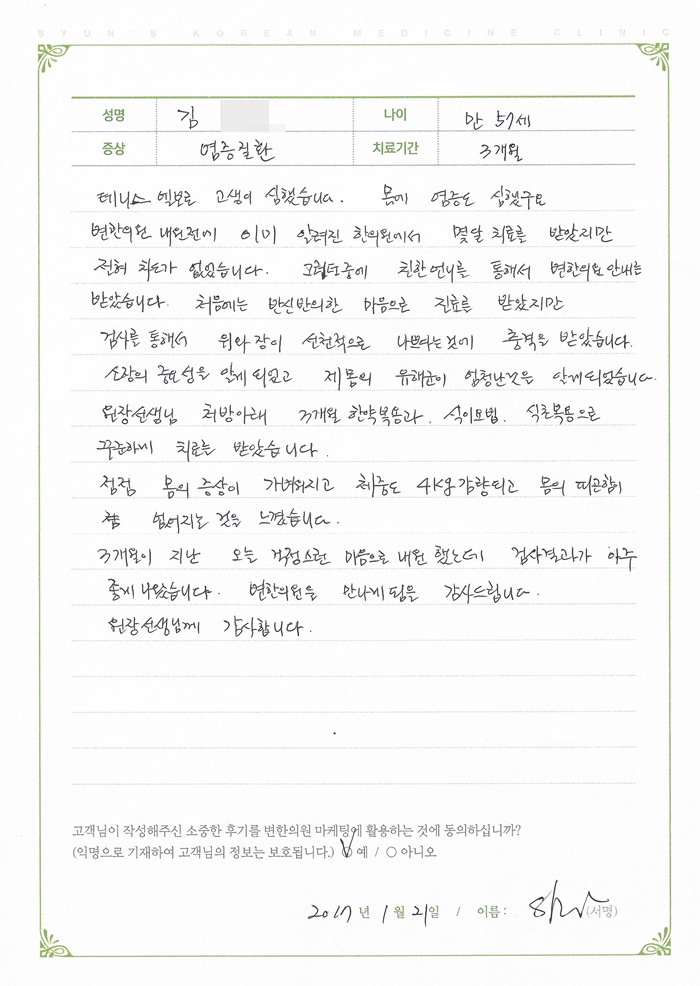 BYUN'S KOREAN MEDICINE CLINIC
성명 김 나이 만 57세
증상 염증질환 치료기간 3개월
테니스 엘보로 고생이 심했습니다. 몸에 염증도 심했구요
변한의원 내원전에 이미 알려진 한의원에서 몇달 치료를 받았지만
전혀 차도가 없었습니다. 그러던중에 친한언니를 통해서 변한의원 안내를
받았습니다. 처음에는 반신반의한 마음으로 진료를 받았지만
검사를 통해서 위와 장이 선천적으로 나쁘다는것에 충격을 받았습니다.
소장의 중요성을 알게 되었고 제 몸의 유해균이 엄청난것은 알게되었습니다.
원장선생님 처방아래 3개월 한약복용과. 식이요법. 식초복용으로
꾸준하게 치료를 받았습니다.
점점 몸의 증상이 가벼워지고 체중도 4kg 감량되고 몸의 피곤함이
없어지는 것을 느꼈습니다.
3개월이 지난 오늘 걱정스런 마음으로 내원 했는데 검사결과가 아주
좋게 나왔습니다. 변한의원을 만나게됨을 감사드립니다.
원장선생님께 감사합니다.
고객님이 작성해주신 소중한 후기를 변한의원 마케팅에 활용하는 것에 동의하십니까?
(익명으로 기재하여 고객님의 정보는 보호됩니다.) ○ 예 / ○ 아니오
2017년 1월 21일 / 이름: (서명)